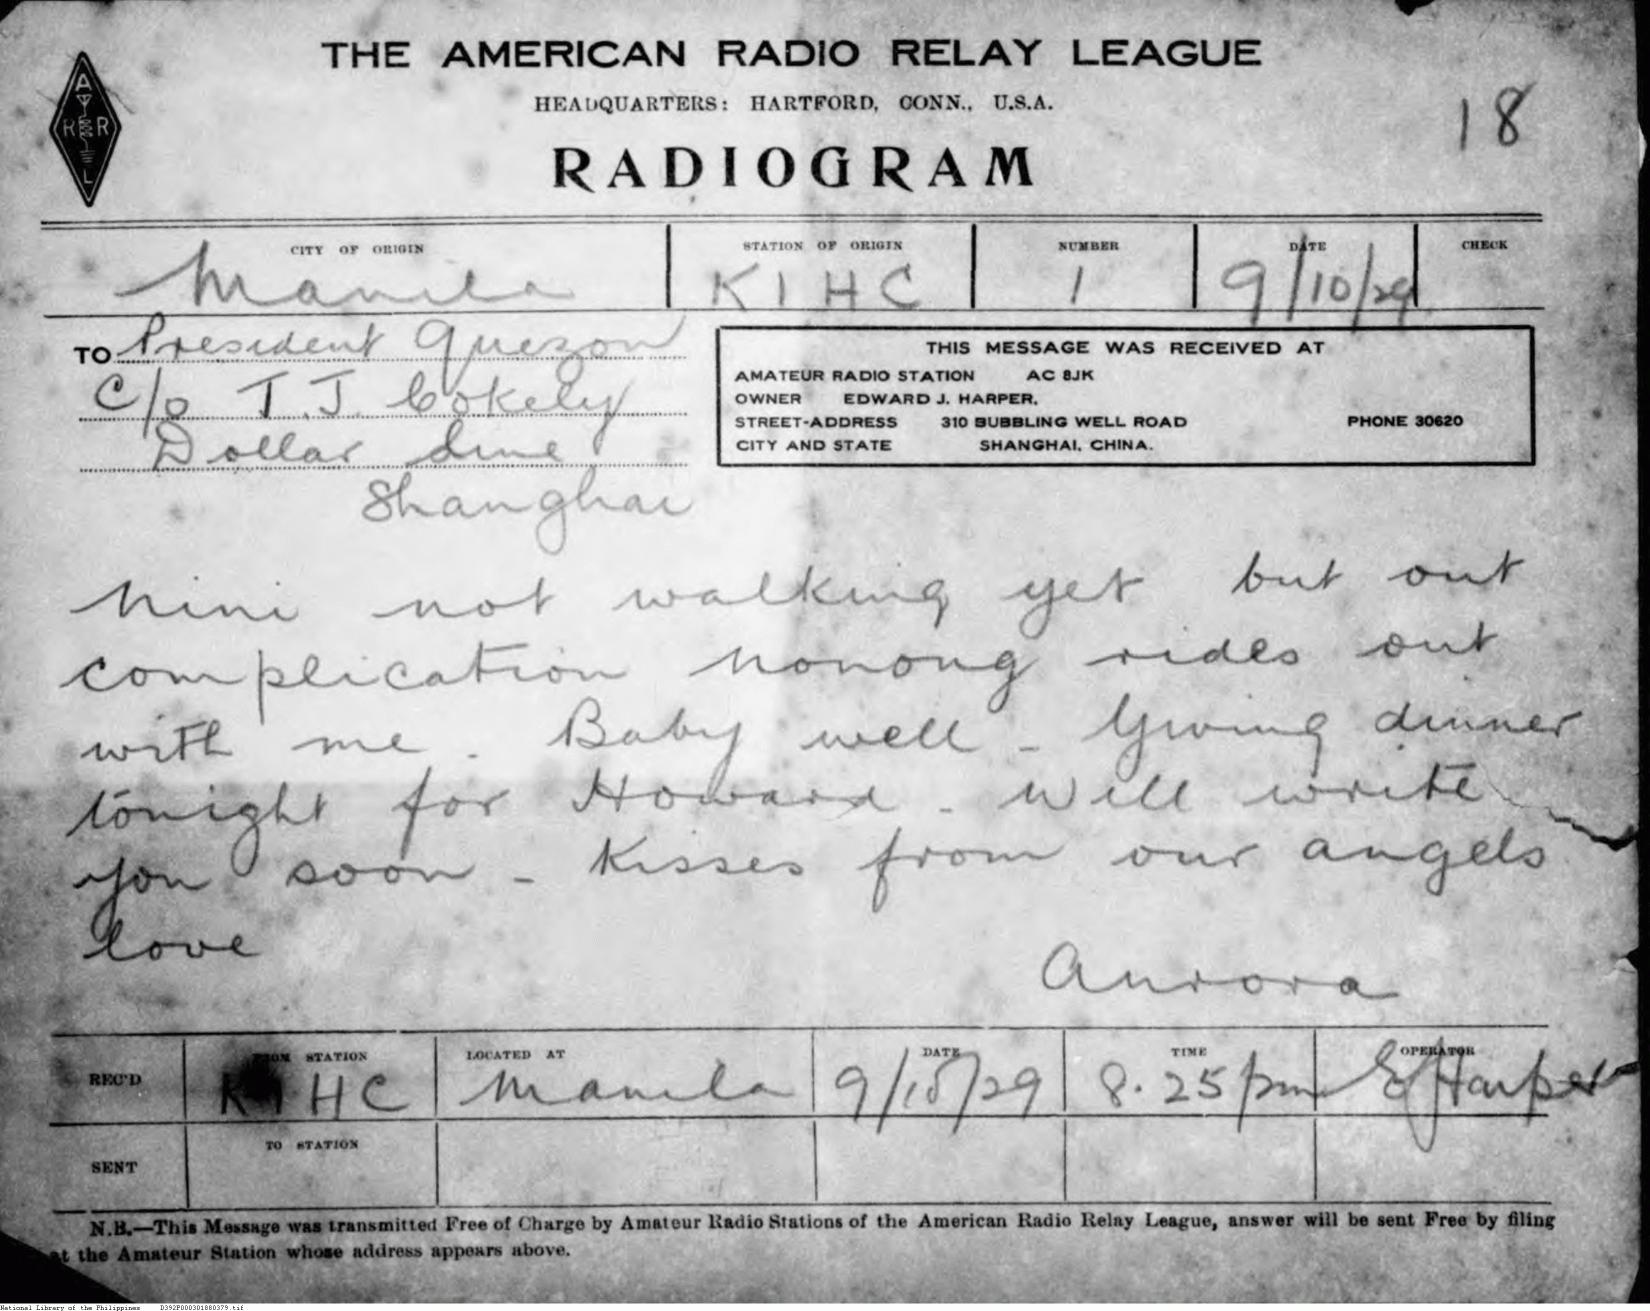 THE AMERICAN RADIO RELAY LEAGUE
HEADQUARTERS: HARTFORD, CONN., U.S.A.
RADIOGRAM
18
A
R R
L
CITY OF ORIGIN STATION OF ORIGIN NUMBER DATE CHECK
Manila K1HC 1 9/10/29
TO President Quezon
c/o T.J. Cokely
Dollar Line
Shanghai
THIS MESSAGE WAS RECEIVED AT
AMATEUR RADIO STATION AC 8JK
OWNER EDWARD J. HARPER.
STREET-ADDRESS 310 BUBBLING WELL ROAD PHONE 30620
CITY AND STATE SHANGHAI, CHINA.
Nini not walking yet but out
complication nonong rides out
with me. Baby well - Giving dinner
tonight for Howard - Will write
you soon - Kisses from our angels
love
Aurora
REC'D FROM STATION LOCATED AT DATE TIME OPERATOR
K1HC Manila 9/10/29 8.25 pm EJHarper
SENT TO STATION
N.B.—This Message was transmitted Free of Charge by Amateur Radio Stations of the American Radio Relay League, answer will be sent Free by filing
at the Amateur Station whose address appears above.
National Library of the Philippines D392P000301880379.tif